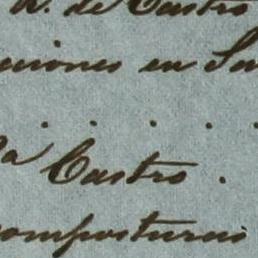 R. de Castro
ciones en Su
a Castro.
composturas